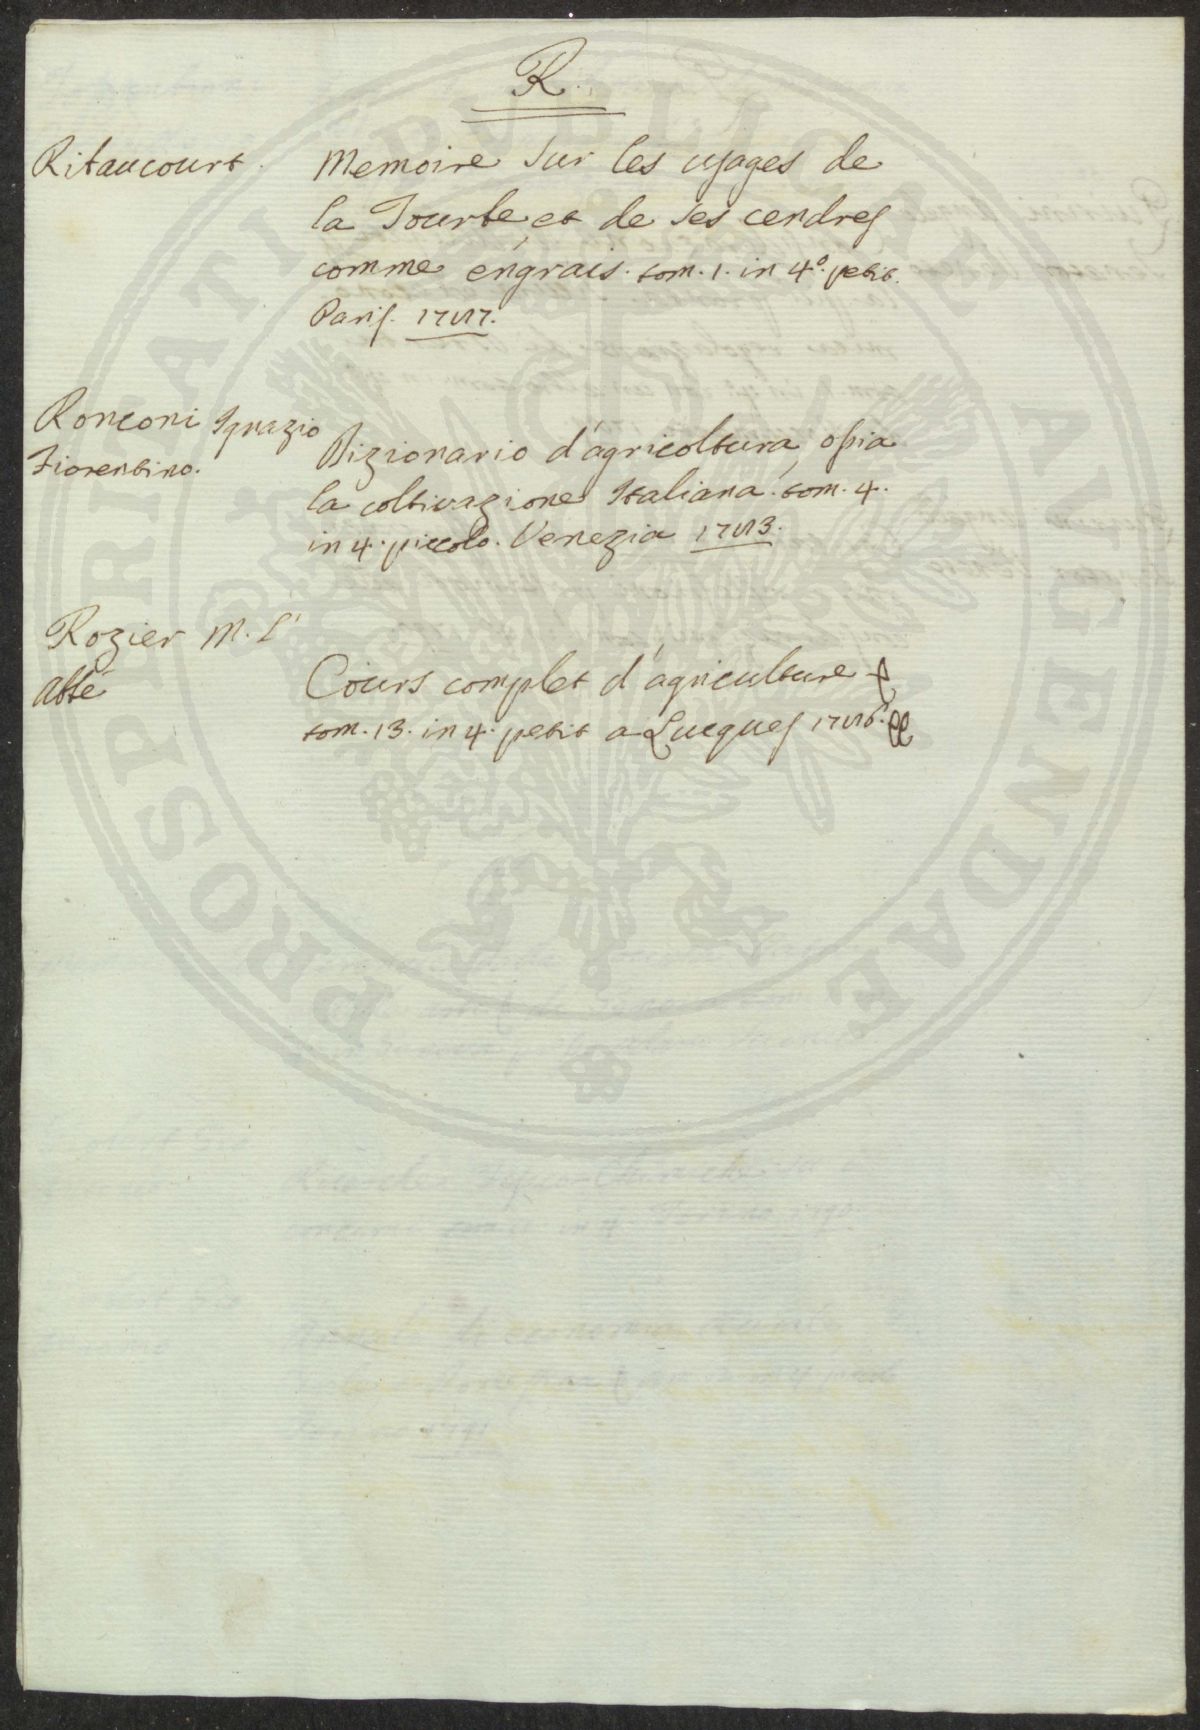 R.
Ritaucourt. Memoire sur les usages de
la Tourbe, et de ses cendres
comme engrais. tom. 1. in 4.º petit.
Paris. 1787.
Ronconi Ignazio
Fiorentino. Dizionario d'agricoltura, ossia
la coltivazione Italiana. tom. 4.
in 4. piccolo. Venezia 1783.
Rozier M. L'
Abbé Cours complet d'agriculture
tom. 13. in 4. petit a Lucques 1786.
PROSPERITATI PUBLICAE AUGENDAE